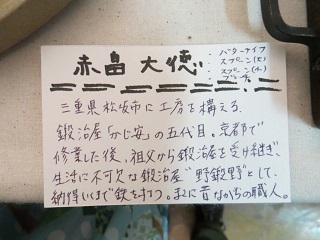 赤畠 大徳
・バターナイフ
・スプーン(大)
・スプーン(小)
三重県松阪市に工房を構える、
鍛冶屋「かじ安」の五代目。京都で
修業した後、祖父から鍛冶屋を受け継ぎ、
生活に不可欠な鍛冶屋"野鍛野"として、
納得いくまで鉄を打つ。まさに昔ながらの職人。